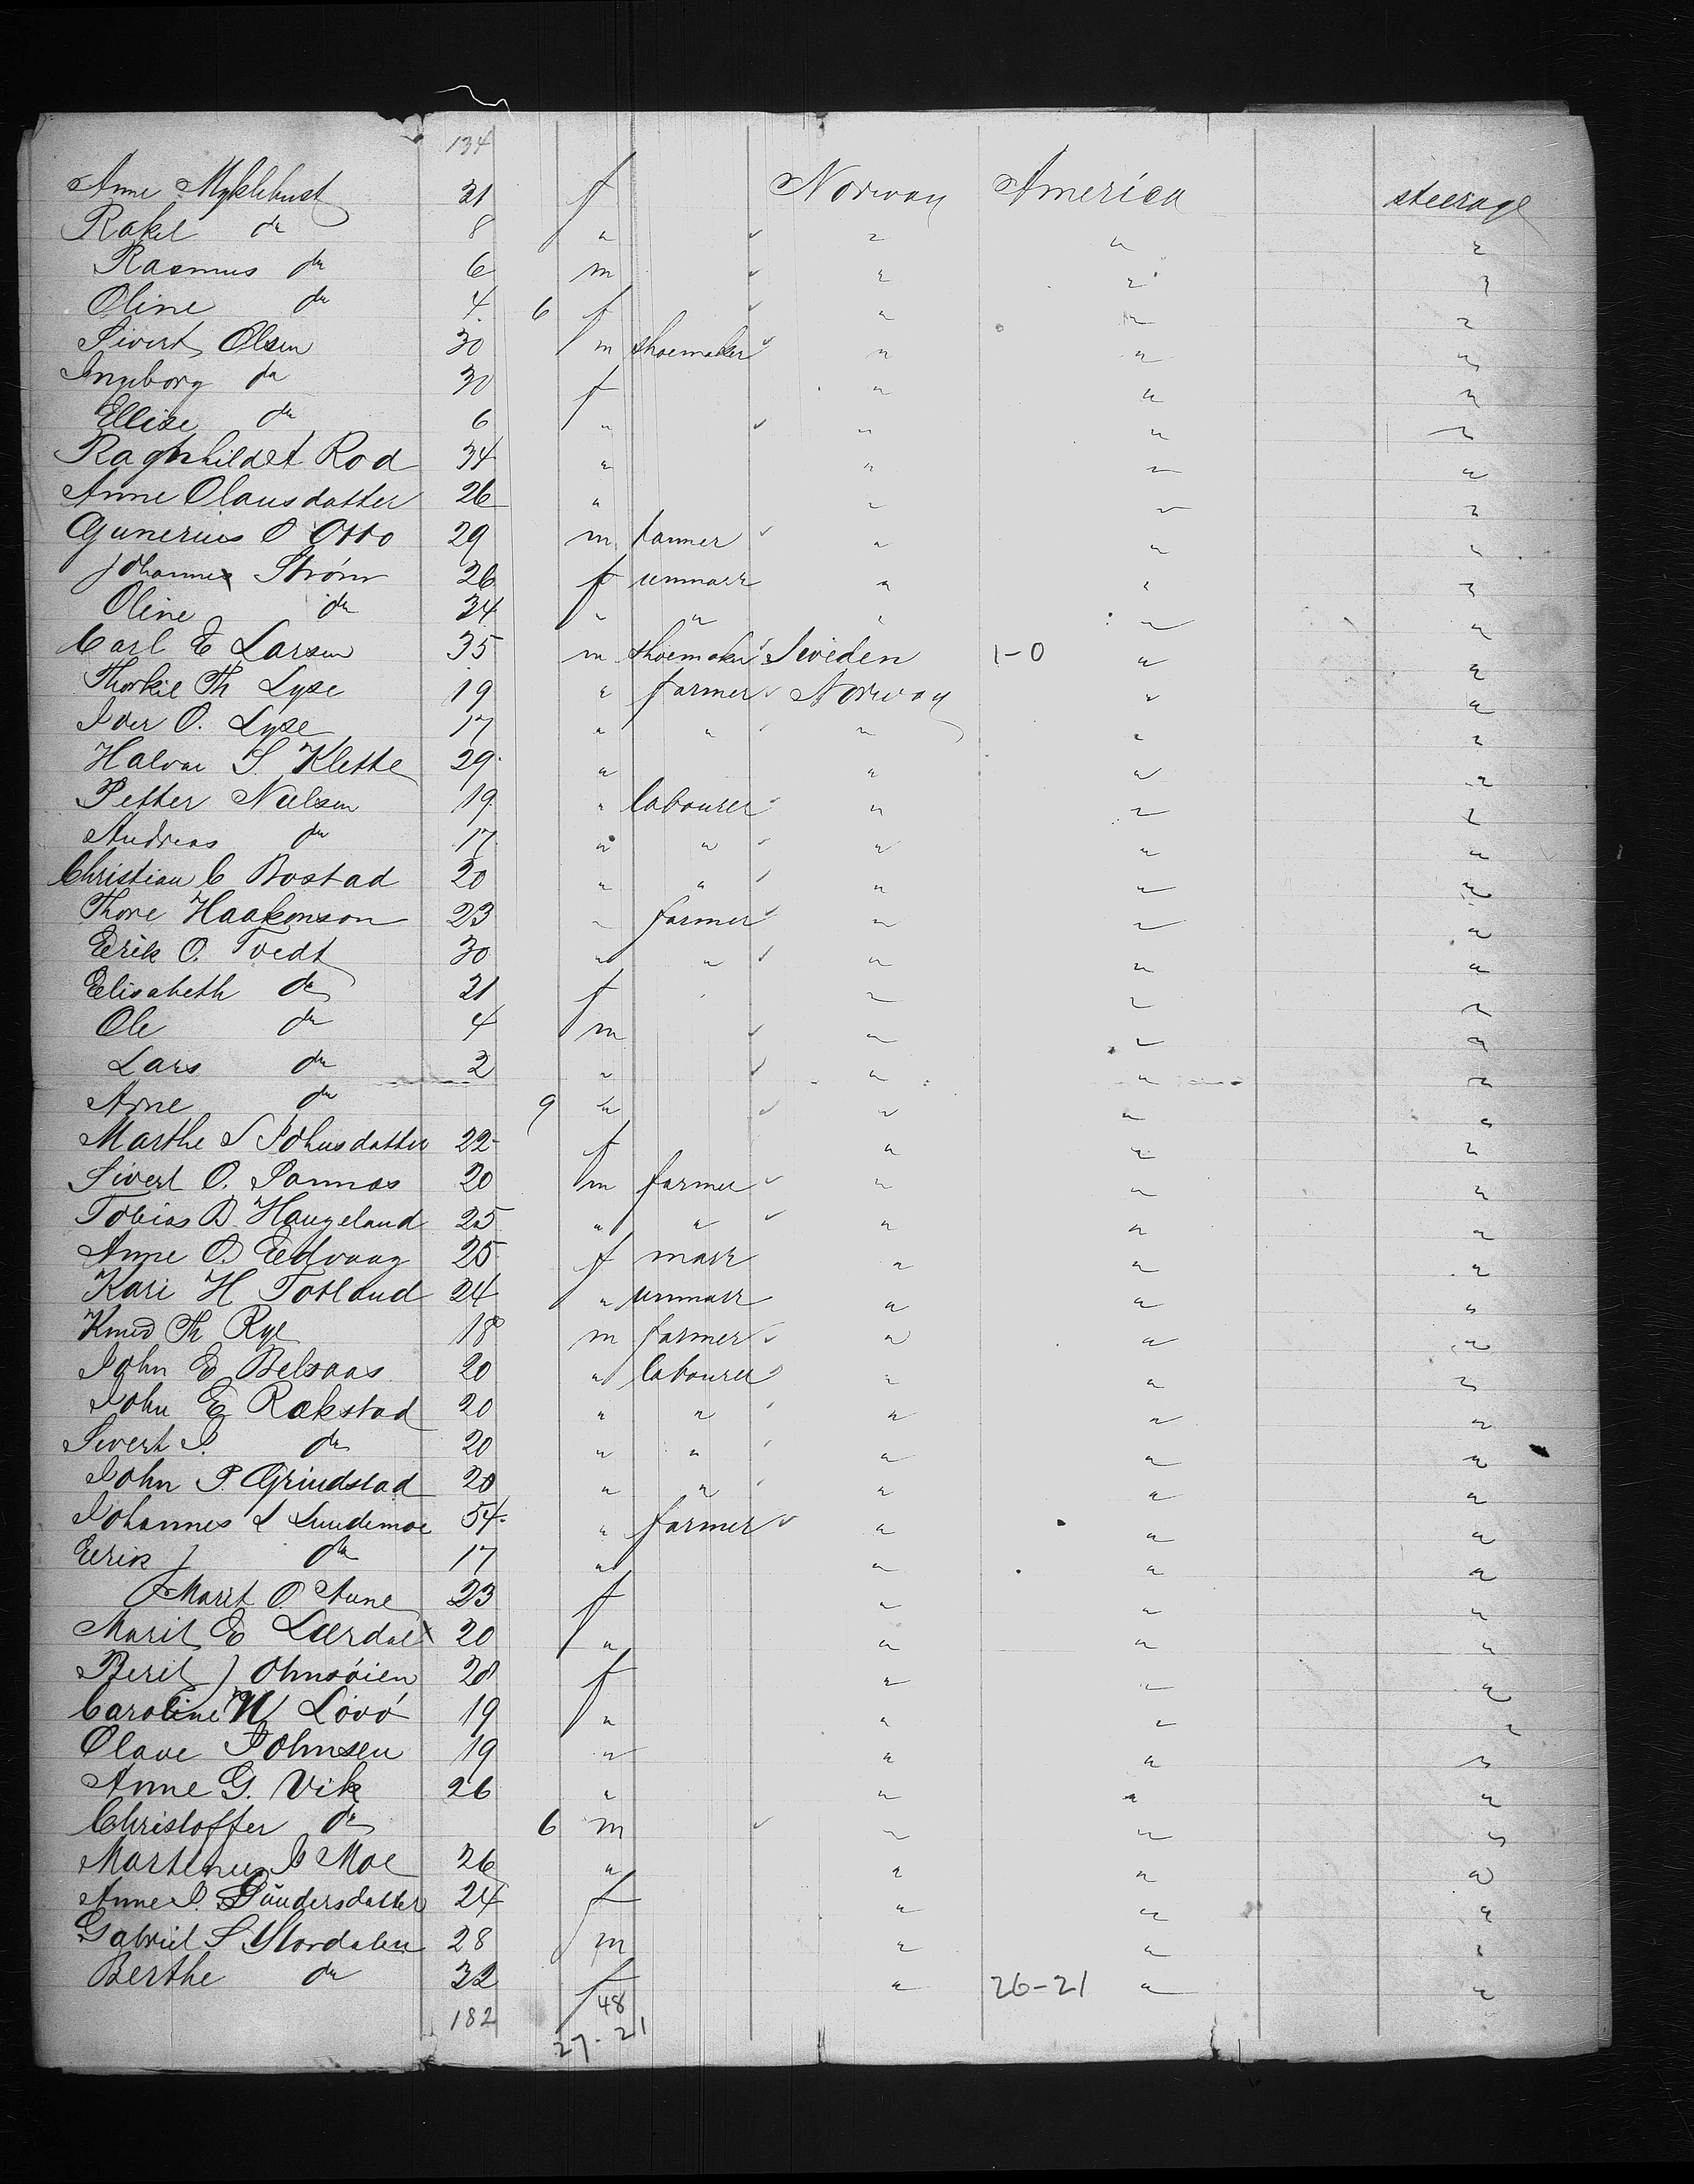 134
Anne Myklebust 31 f Norway America steerage
Rakel do 8 " " " "
Rasmus do 6 m " " "
Oline do 4 6 f " " "
Sivert Olsen 30 m shoemaker " " "
Ingeborg do 30 f " " "
Ellise do 6 " " " "
Raghnhildet Rod 34 " " " "
Anne Olausdatter 26 " " " "
Gunerius O Otto 29 m tanner " " "
Johannes Ström 26 f unmarr " " "
Oline do 34 " " " " "
Carl E Larsen 35 m shoemaker Sweden 1-0 " "
Thorkil Th Lyse 19 " farmer Norway " "
Iver O. Lyse 17 " " " " "
Halvar S. Klette 29 " " " "
Petter Nielsen 19 " labourer " " "
Andreas do 17 " " " " "
Christian C Bostad 20 " " " " "
Thore Haakonson 23 " farmer " " "
Eerik O. Tvedt 30 " " " " "
Elisabeth do 21 f " " "
Ole do 4 m " " "
Lars do 2 " " " "
Arne do 9 " " " "
Marthe S Johnsdatter 22 f " " "
Sivert O. Sannas 20 m farmer " " "
Tobias B. Haugeland 25 " " " " "
Anne O. Edvaag 25 f marr " " "
Kari H Totland 24 " unmarr " " "
Knud Th Rye 18 m farmer " " "
John E Belsaas 20 " labourer " " "
John E Rakstad 20 " " " " "
Sivert I. do 20 " " " " "
John P. Grindstad 20 " " " " "
Johannes L Lundemoe 54 " farmer " " "
Eerik J do 17 " " " "
Marit O. Aune 23 f " " "
Marit E Lærdal 20 " " " "
Beril Johnsöien 28 f " " "
Caroline N Lövö 19 " " " "
Olave Johnsen 19 " " " "
Anne G. Vik 26 " " " "
Christoffer do 6 m " " "
Martinus Moe 26 " " " "
Anne Gundersdatter 24 f " " "
Gabriel S Stordalen 28 m " " "
Berthe do 32 f " 26-21 " "
182 48
27-21